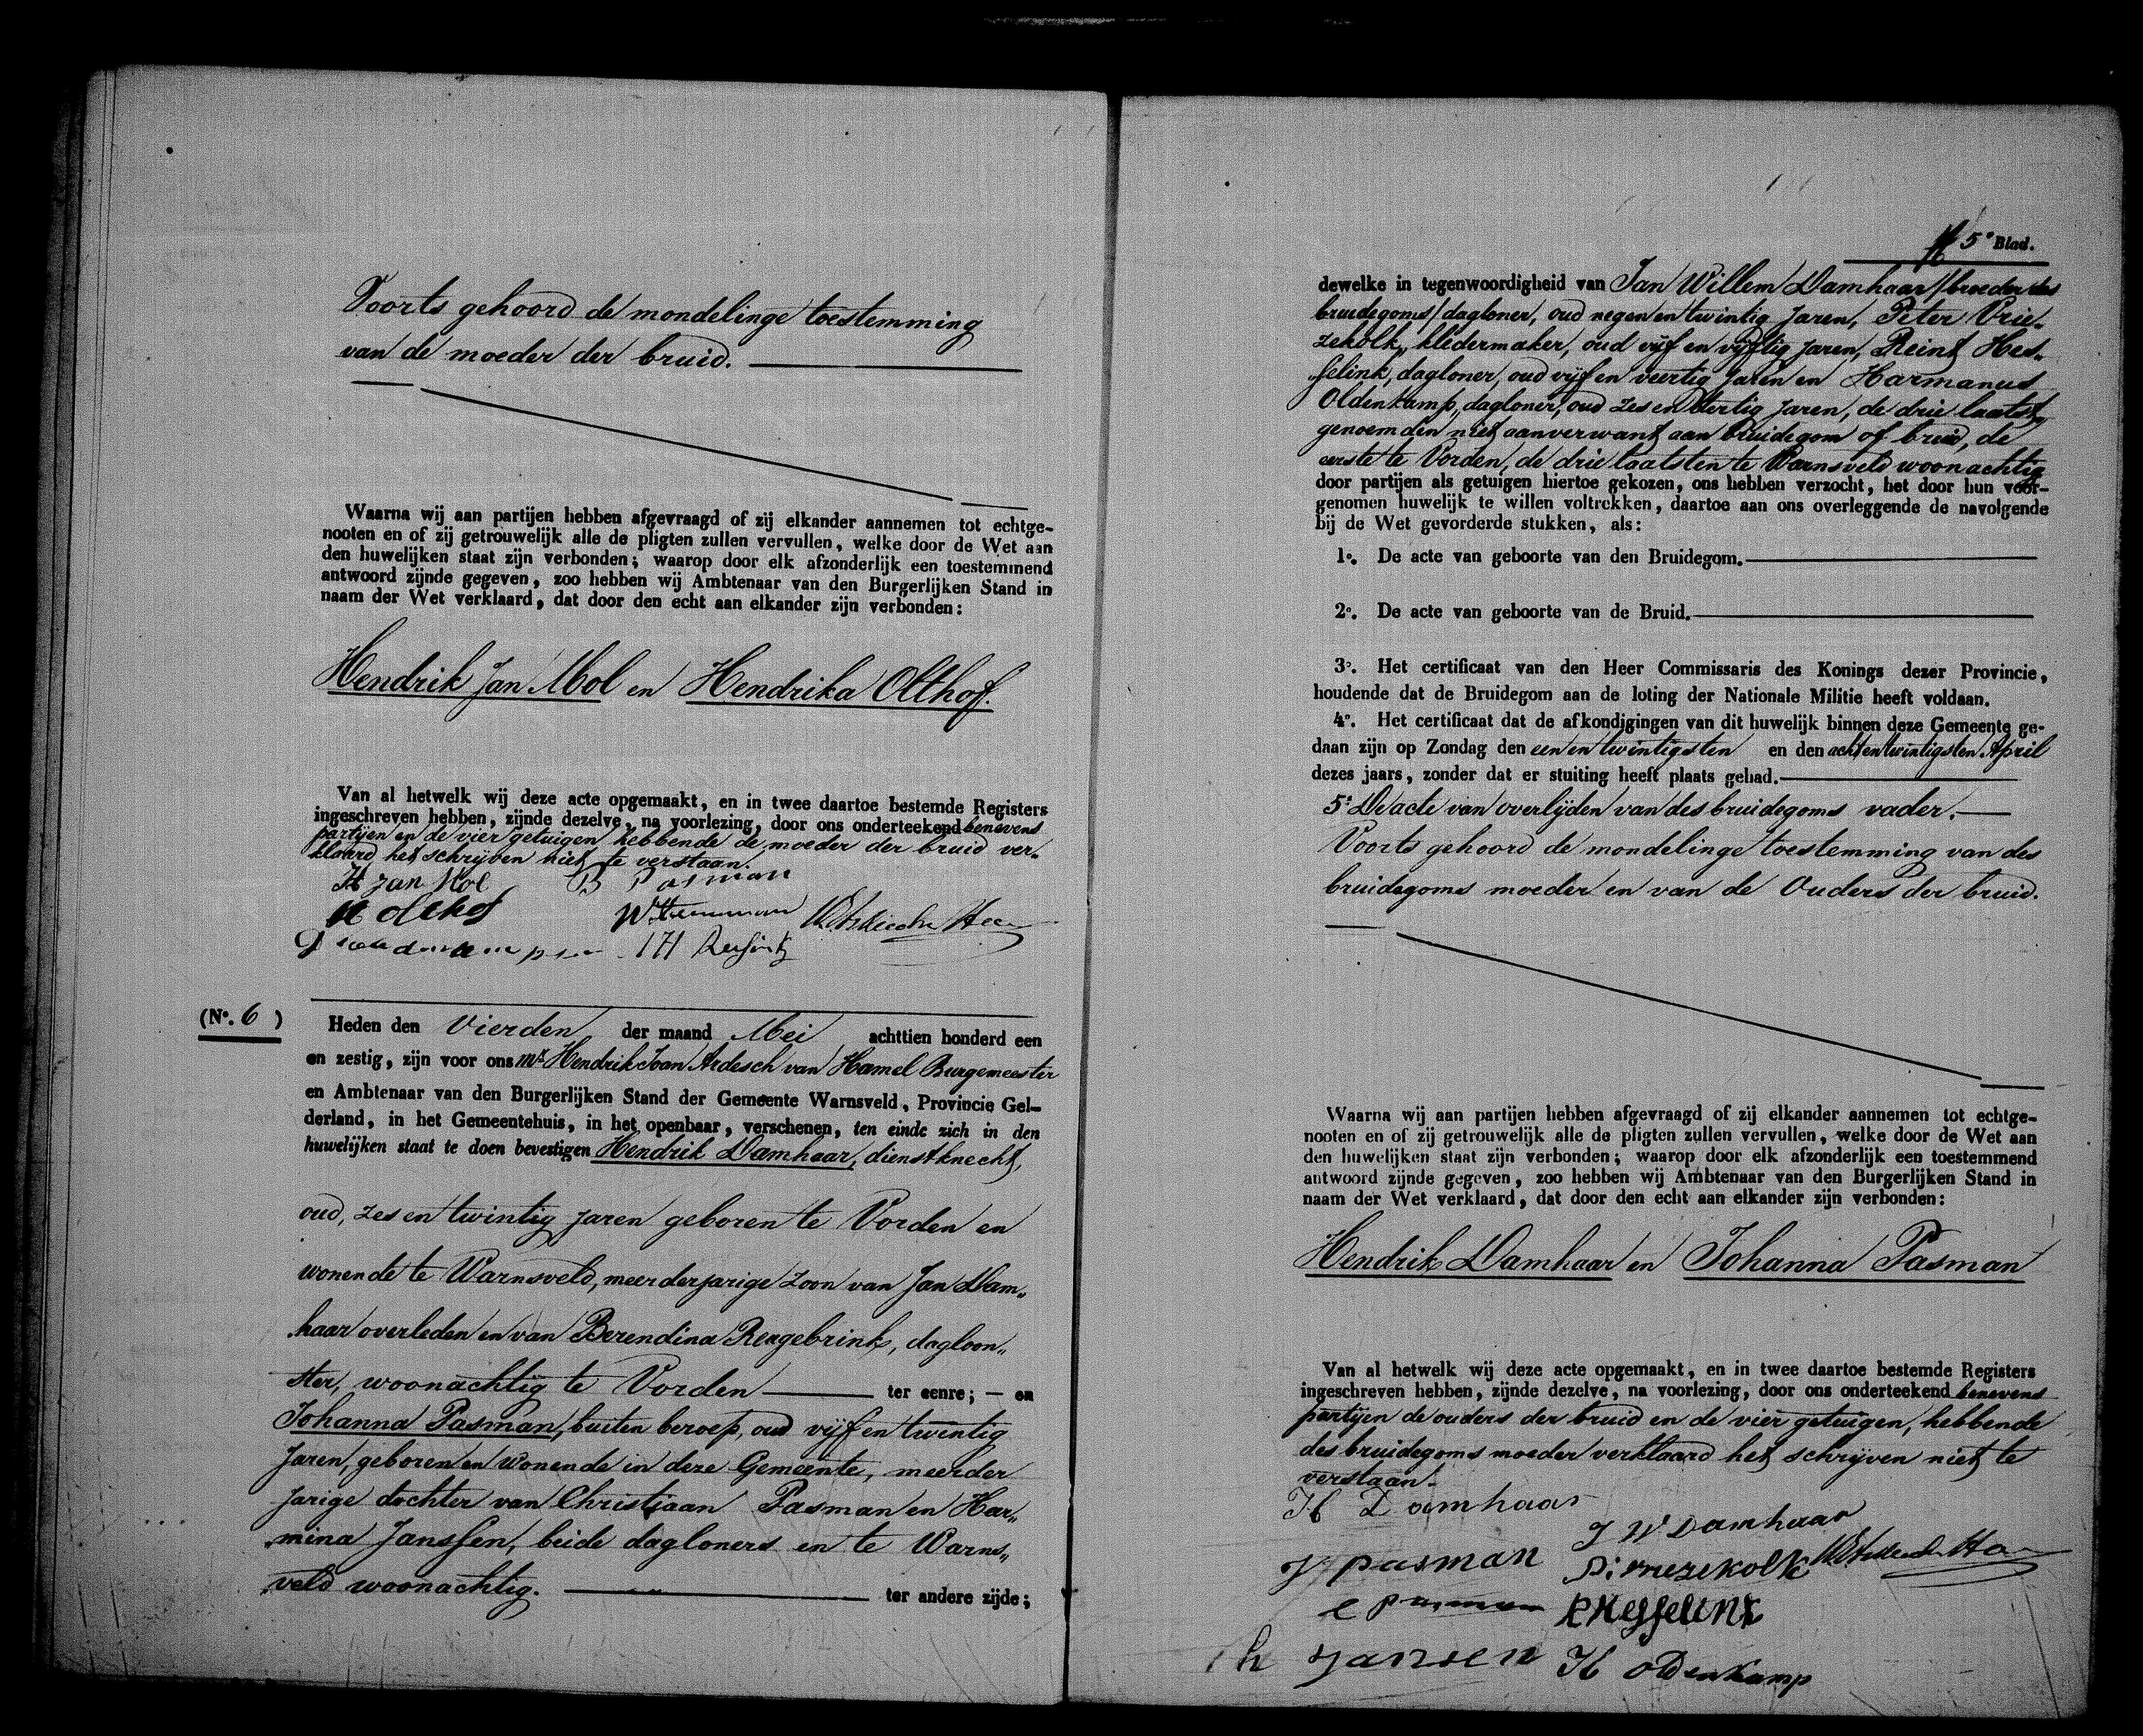 Voorts gehoord de mondelinge toestemming
van de moeder der bruid.
Waarna wij aan partijen hebben afgevraagd of zij elkander aannemen tot echtge-
nooten en of zij getrouwelijk alle de pligten zullen vervullen, welke door de Wet aan
den huwelijken staat zijn verbonden; waarop door elk afzonderlijk een toestemmend
antwoord zijnde gegeven, zoo hebben wij Ambtenaar van den Burgerlijken Stand in
naam der Wet verklaard, dat door den echt aan elkander zijn verbonden:
Hendrik Jan Mol en Hendrika Olthof.
Van al hetwelk wij deze acte opgemaakt, en in twee daartoe bestemde Registers
ingeschreven hebben, zijnde dezelve, na voorlezing, door ons onderteekend benevens
partijen en de vier getuigen hebbende de moeder der bruid ver„
klaard het schrijven niet te verstaan.
H Jan Mol B Pasman
H olthof
(No. 6 ) Heden den Vierden der maand Mei achttien honderd een
en zestig, zijn voor ons Mr Hendrik Joan Ardesch van Hamel Burgemeester
en Ambtenaar van den Burgerlijken Stand der Gemeente Warnsveld, Provincie Gel-
derland, in het Gemeentehuis, in het openbaar, verschenen, ten einde zich in den
huwelijken staat te doen bevestigen Hendrik Damhaar, dienstknecht,
oud, zes en twintig jaren geboren te Vorden en
wonende te Warnsveld, meerderjarige zoon van Jan Dam„
haar overleden en van Berendina Reugebrink, dagloon„
ster, woonachtig te Vorden ter eenre; — en
Johanna Pasman, buiten beroep, oud vijf en twintig
Jaren, geboren en wonende in deze Gemeente, meerder
jarige dochter van Christiaan Pasman en Har„
mina Janssen, beide dagloners en te Warns„
veld woonachtig. ter andere zijde;
5e Blad.
dewelke in tegenwoordigheid van Jan Willem Damhaar /broeder des
bruidegoms/ dagloner, oud negen en twintig Jaren, Peter Vrie„
zekolk, kledermaker, oud vijf en vijftig jaren, Reint Hes„
selink, dagloner, oud vijf en veertig Jaren en Harmanus
Oldenkamp, dagloner, oud zes en dertig jaren, de drie laatst
genoemden niet aanverwant aan bruidegom of bruid, de
eerste te Vorden, de drie laatsten te Warnsveld woonachtig
door partijen als getuigen hiertoe gekozen, ons hebben verzocht, het door hun voor-
genomen huwelijk te willen voltrekken, daartoe aan ons overleggende de navolgende
bij de Wet gevorderde stukken, als:
1o. De acte van geboorte van den Bruidegom.
2o. De acte van geboorte van de Bruid.
3o. Het certificaat van den Heer Commissaris des Konings dezer Provincie,
houdende dat de Bruidegom aan de loting der Nationale Militie heeft voldaan.
4o. Het certificaat dat de afkondigingen van dit huwelijk binnen deze Gemeente ge-
daan zijn op Zondag den een en twintigsten en den acht en twintigsten April
dezes jaars, zonder dat er stuiting heeft plaats gehad.
5o De acte van overlijden van des bruidegoms vader.
Voorts gehoord de mondelinge toestemming van des
bruidegoms moeder en van de Ouders der bruid.
Waarna wij aan partijen hebben afgevraagd of zij elkander aannemen tot echtge-
nooten en of zij getrouwelijk alle de pligten zullen vervullen, welke door de Wet aan
den huwelijken staat zijn verbonden; waarop door elk afzonderlijk een toestemmend
antwoord zijnde gegeven, zoo hebben wij Ambtenaar van den Burgerlijken Stand in
naam der Wet verklaard, dat door den echt aan elkander zijn verbonden:
Hendrik Damhaar en Johanna Pasman
Van al hetwelk wij deze acte opgemaakt, en in twee daartoe bestemde Registers
ingeschreven hebben, zijnde dezelve, na voorlezing, door ons onderteekend benevens
partijen de ouders der bruid en de vier getuigen, hebbende
des bruidegoms moeder verklaard het schrijven niet te
verstaan.
H Damhaar
J W Damhaar
J pasman
P: vriezekolk
R Hesselink
h jansen H oldenkamp